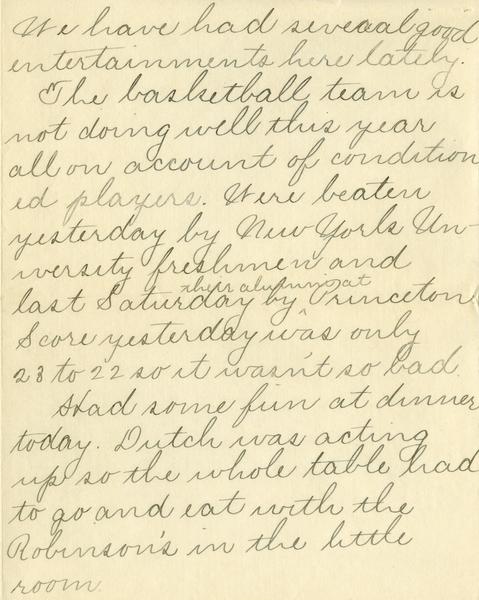 We have had seveaal good
entertainments here lately.
The basketball team is
not doing well this year
all on account of condition
ed players. Were beaten
yesterday by New York Un-
iversity freshmen and
their alumni at
last Saturday by ^ Princeton
Score yesterday was only
23 to 22 so it wasn't so bad.
Had some fun at dinner
today. Dutch was acting
up so the whole table had
to go and eat with the
Robinson's in the little
room.